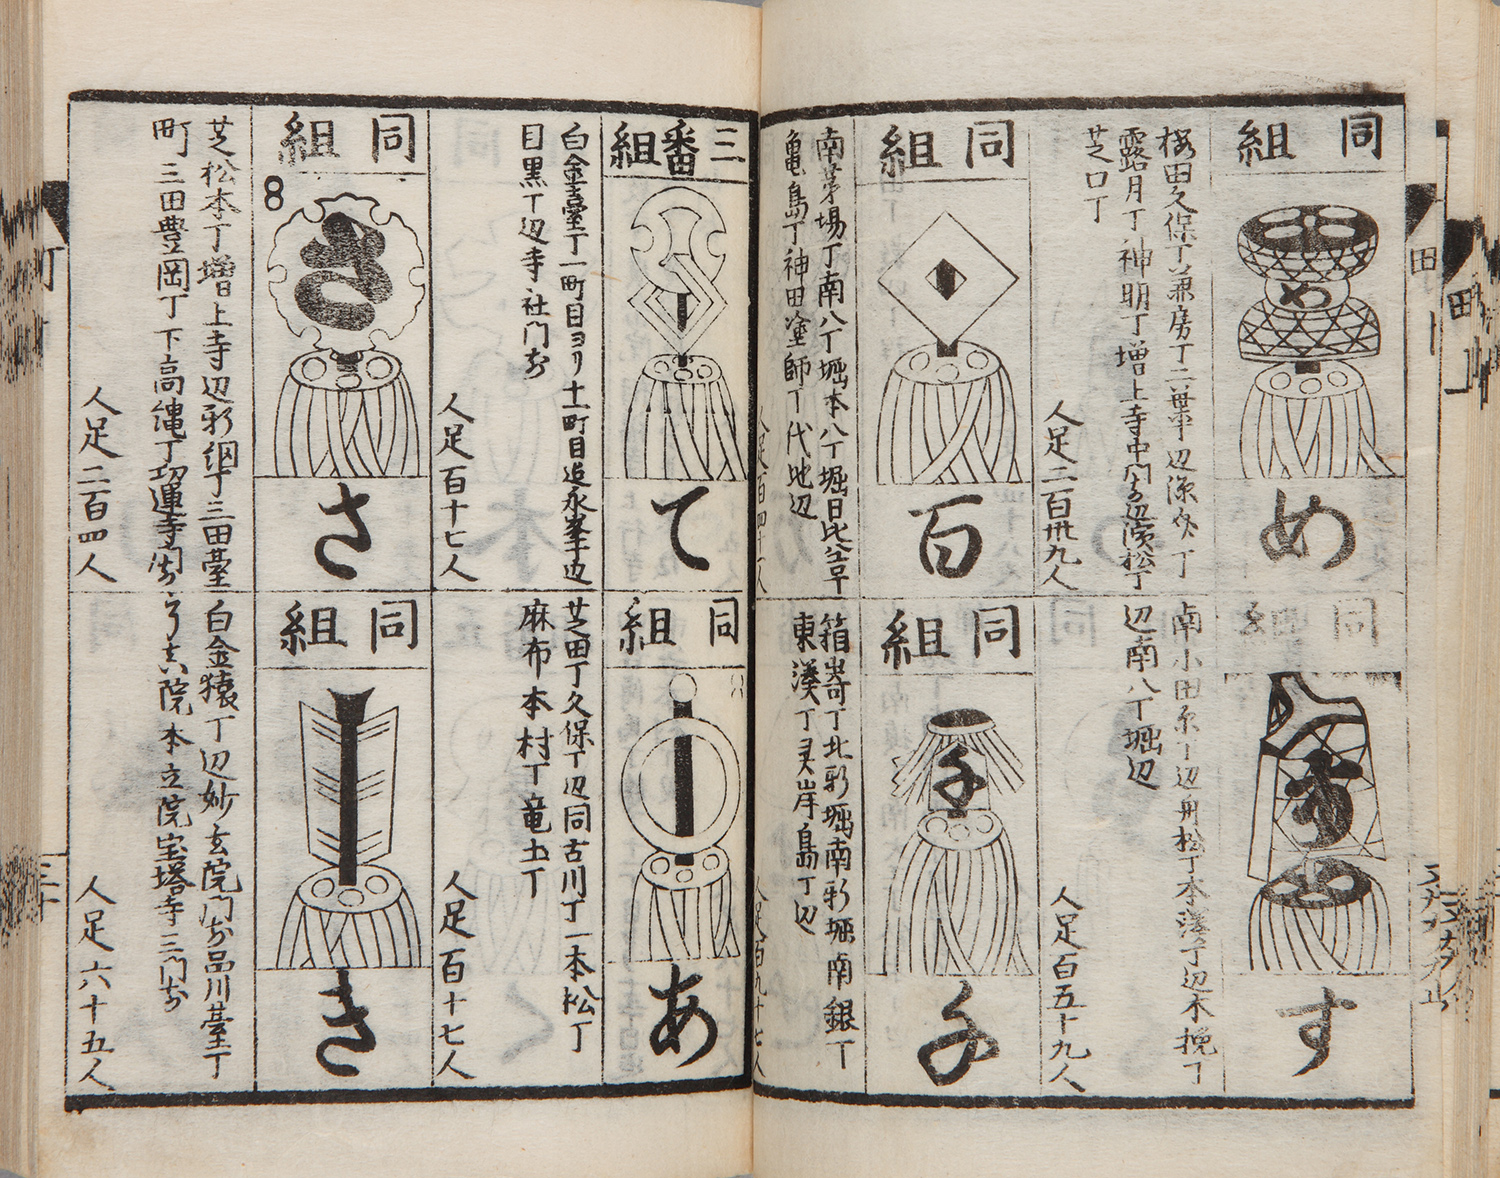 同組
め
桜田久保丁兼房丁二葉丁辺源介丁
露月丁神明丁増上寺中門前辺浜松丁
芝口丁
人足二百卅九人
同組
す
南小田原丁辺舟松丁本湊丁辺木挽丁
辺南八丁堀辺
人足百五十九人
同組
百
南茅場丁南八丁堀本八丁堀日比谷丁
亀島丁神田塗師丁代地辺
同組
千
千
箱崎丁北新堀南新堀南銀丁
東湊丁灵岸島丁辺
人足百九十七人
三番組
て
白金臺丁一町目ヨリ十一町目迄永峯丁辺
目黒丁辺寺社門前
人足百十七人
同組
あ
芝田丁久保丁辺同古川丁一本松丁
麻布本村丁竜土丁
人足百十七人
同組
さ
さ
芝松本丁増上寺辺新網丁三田臺
町三田豊岡丁下高縄丁功運寺門前
人足二百四人
同組
き
白金猿丁辺妙玄院門前品川臺丁
院本立院宝塔寺三門前
人足六十五人